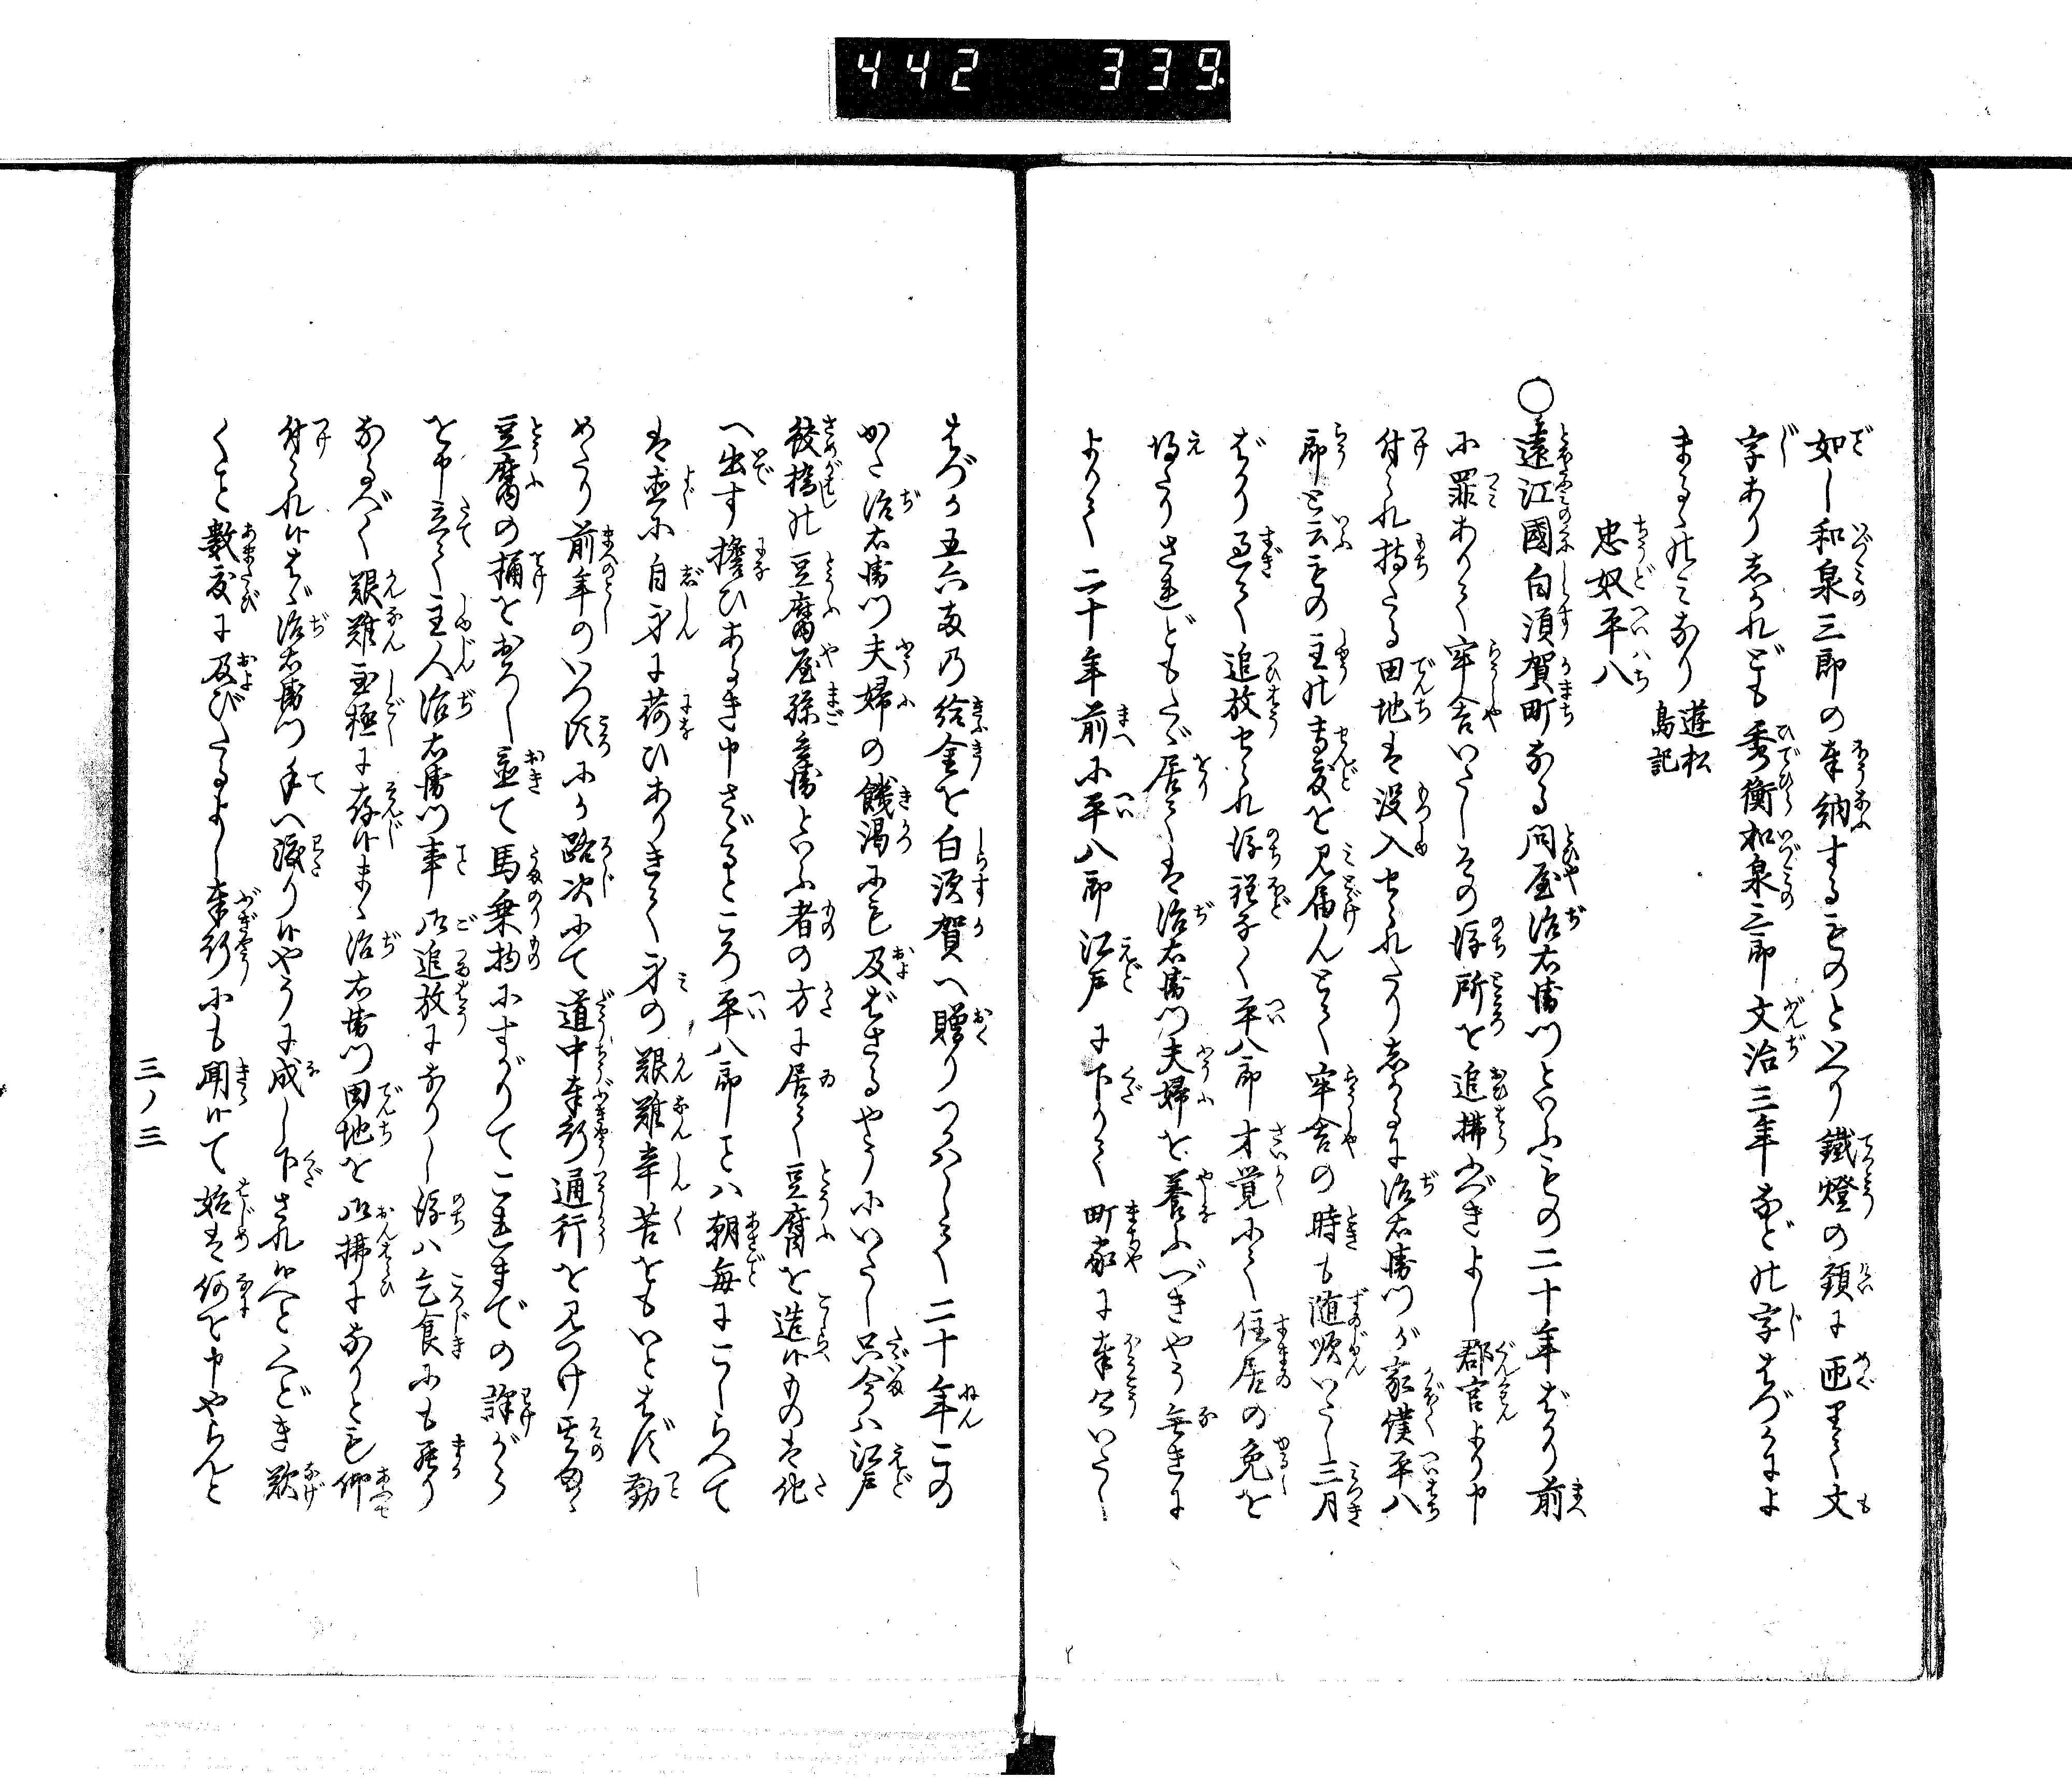 442 339.
如し和泉三郎の奉納するものといへり鐵燈の頚に匝りて文
字ありしかれども秀衡和泉三郎文治三年などの字はづかによ
まるゝのミなり 遊松島記
忠奴平八
○遠江國白須賀町なる問屋治右衛門といふもの二十年ばかり前
に罪ありて牢舎いたしその後所を追拂ふべきよし郡官より申
付られ持たる田地は没入せられたりしかるに治右衛門が家僕平八
郎と云もの主の専度を見届んとて牢舎の時も随順いたし三月
ばかり過て追放せられ後程なく平八郎才覚にて住居の免を
得たりされどもたゞ居ては治右衛門夫婦を養ふべきやう無きに
よりて二十年前に平八郎江戸に下りて町家に奉公いたし
はづか五六両乃給金を白須賀へ贈りつかハして二十年この
かた治右衛門夫婦の饑渇にも及ばさるやうにいたし只今ハ江戸
鮫橋の豆腐屋孫兵衛といふ者の方に居て豆腐を造候ものは他
へ出す擔ひあるき申さゞるところ平八郎ことハ朝毎にこしらへて
は直に自身に荷ひありきて身の艱難辛苦をもいとはず勤
めたり前年のいつ頃にか路次にて道中奉行通行を見つけ其まゝ
豆腐の桶をおろし置て馬乗物にすがりてこれまでの譯がら
を申立て主人治右衛門事御追放になりし後ハ乞食にも罷り
なるべく艱難至極に存候まゝ治右衛門田地を御拂になりとも仰
付られ候はゞ治右衛門手へ渡り候やうに成し下され候へとくどき歎
くこと數度に及びたるよし奉行にも聞候て始は何を申やらんと
三ノ三